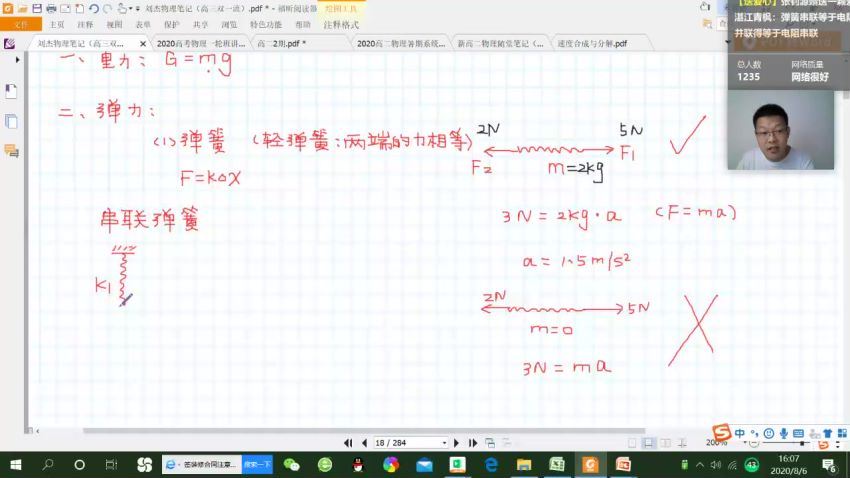 刘杰物理笔记（高三双一流）.pdf * - 福昕阅读器
绘图工具
文件
主页
注释
视图
表单
保护
共享
浏览
特色功能
帮助
注释格式
【送爱心】
湛江青枫：弹簧串联等于电阻
并联得等于电阻串联
刘杰物理笔记（高三双...
2020高考物理一轮班讲...
高二2期.pdf *
2020高二物理暑期系统...
新高二物理随堂笔记（...
速度合成与分解.pdf
总人数
1235
网络质量
网络很好
一、重力：G=mg
二、弹力：
(1) 弹簧（轻弹簧：两端的力相等）
F=K△X
串联弹簧
K1
2N
5N
F2
F1
m=2kg
3N=2kg·a （F=ma）
a=1.5m/s²
2N
5N
m=0
3N=ma
18 / 284
200%
中
签装修合同注意...
搜索一下
43
16:07
2020/8/6
6